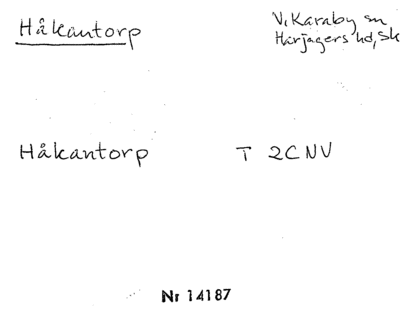 Håkantorp
V. Karaby sn
Harjagers hd, Sk
Håkantorp T 2CNV
Nr 14187